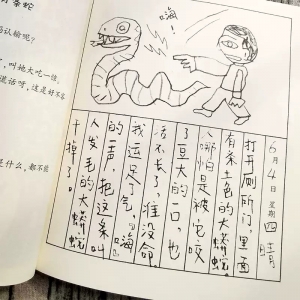 蛇
认输呢?
,叫她大吃一惊。
谎话呀,这是好不容
是什么,都不能
嗨!
6月4日 星期四 晴
打开厕所门,里面
有条土色的大蟒蛇。
哪怕是被它咬
了豆大的一口,也
活不长了,准没命。
我运足了气,“嗨”
的一声,把这条叫
人发毛的大蟒蛇
干掉了。